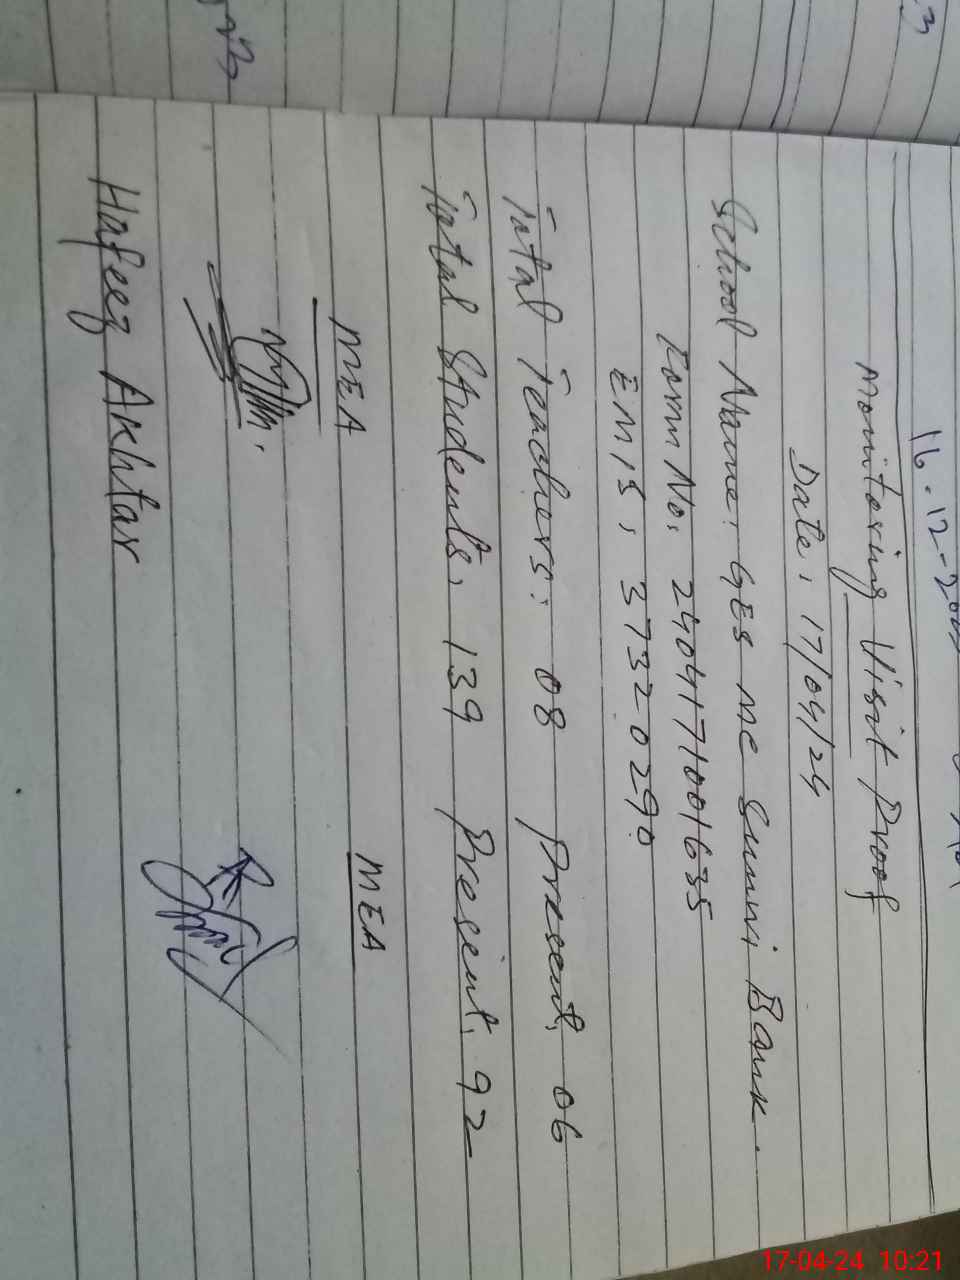 16-12-2023
Monitoring Visit Proof
Date: 17/04/24
School Name: GES MC Gunni Bank.
Form No: 2404171001635
EMIS: 37320290
Total Teachers: 08 Present: 06
Total Students: 139 Present: 92
MEA MEA
Hafeez Akhtar
17-04-24 10:21